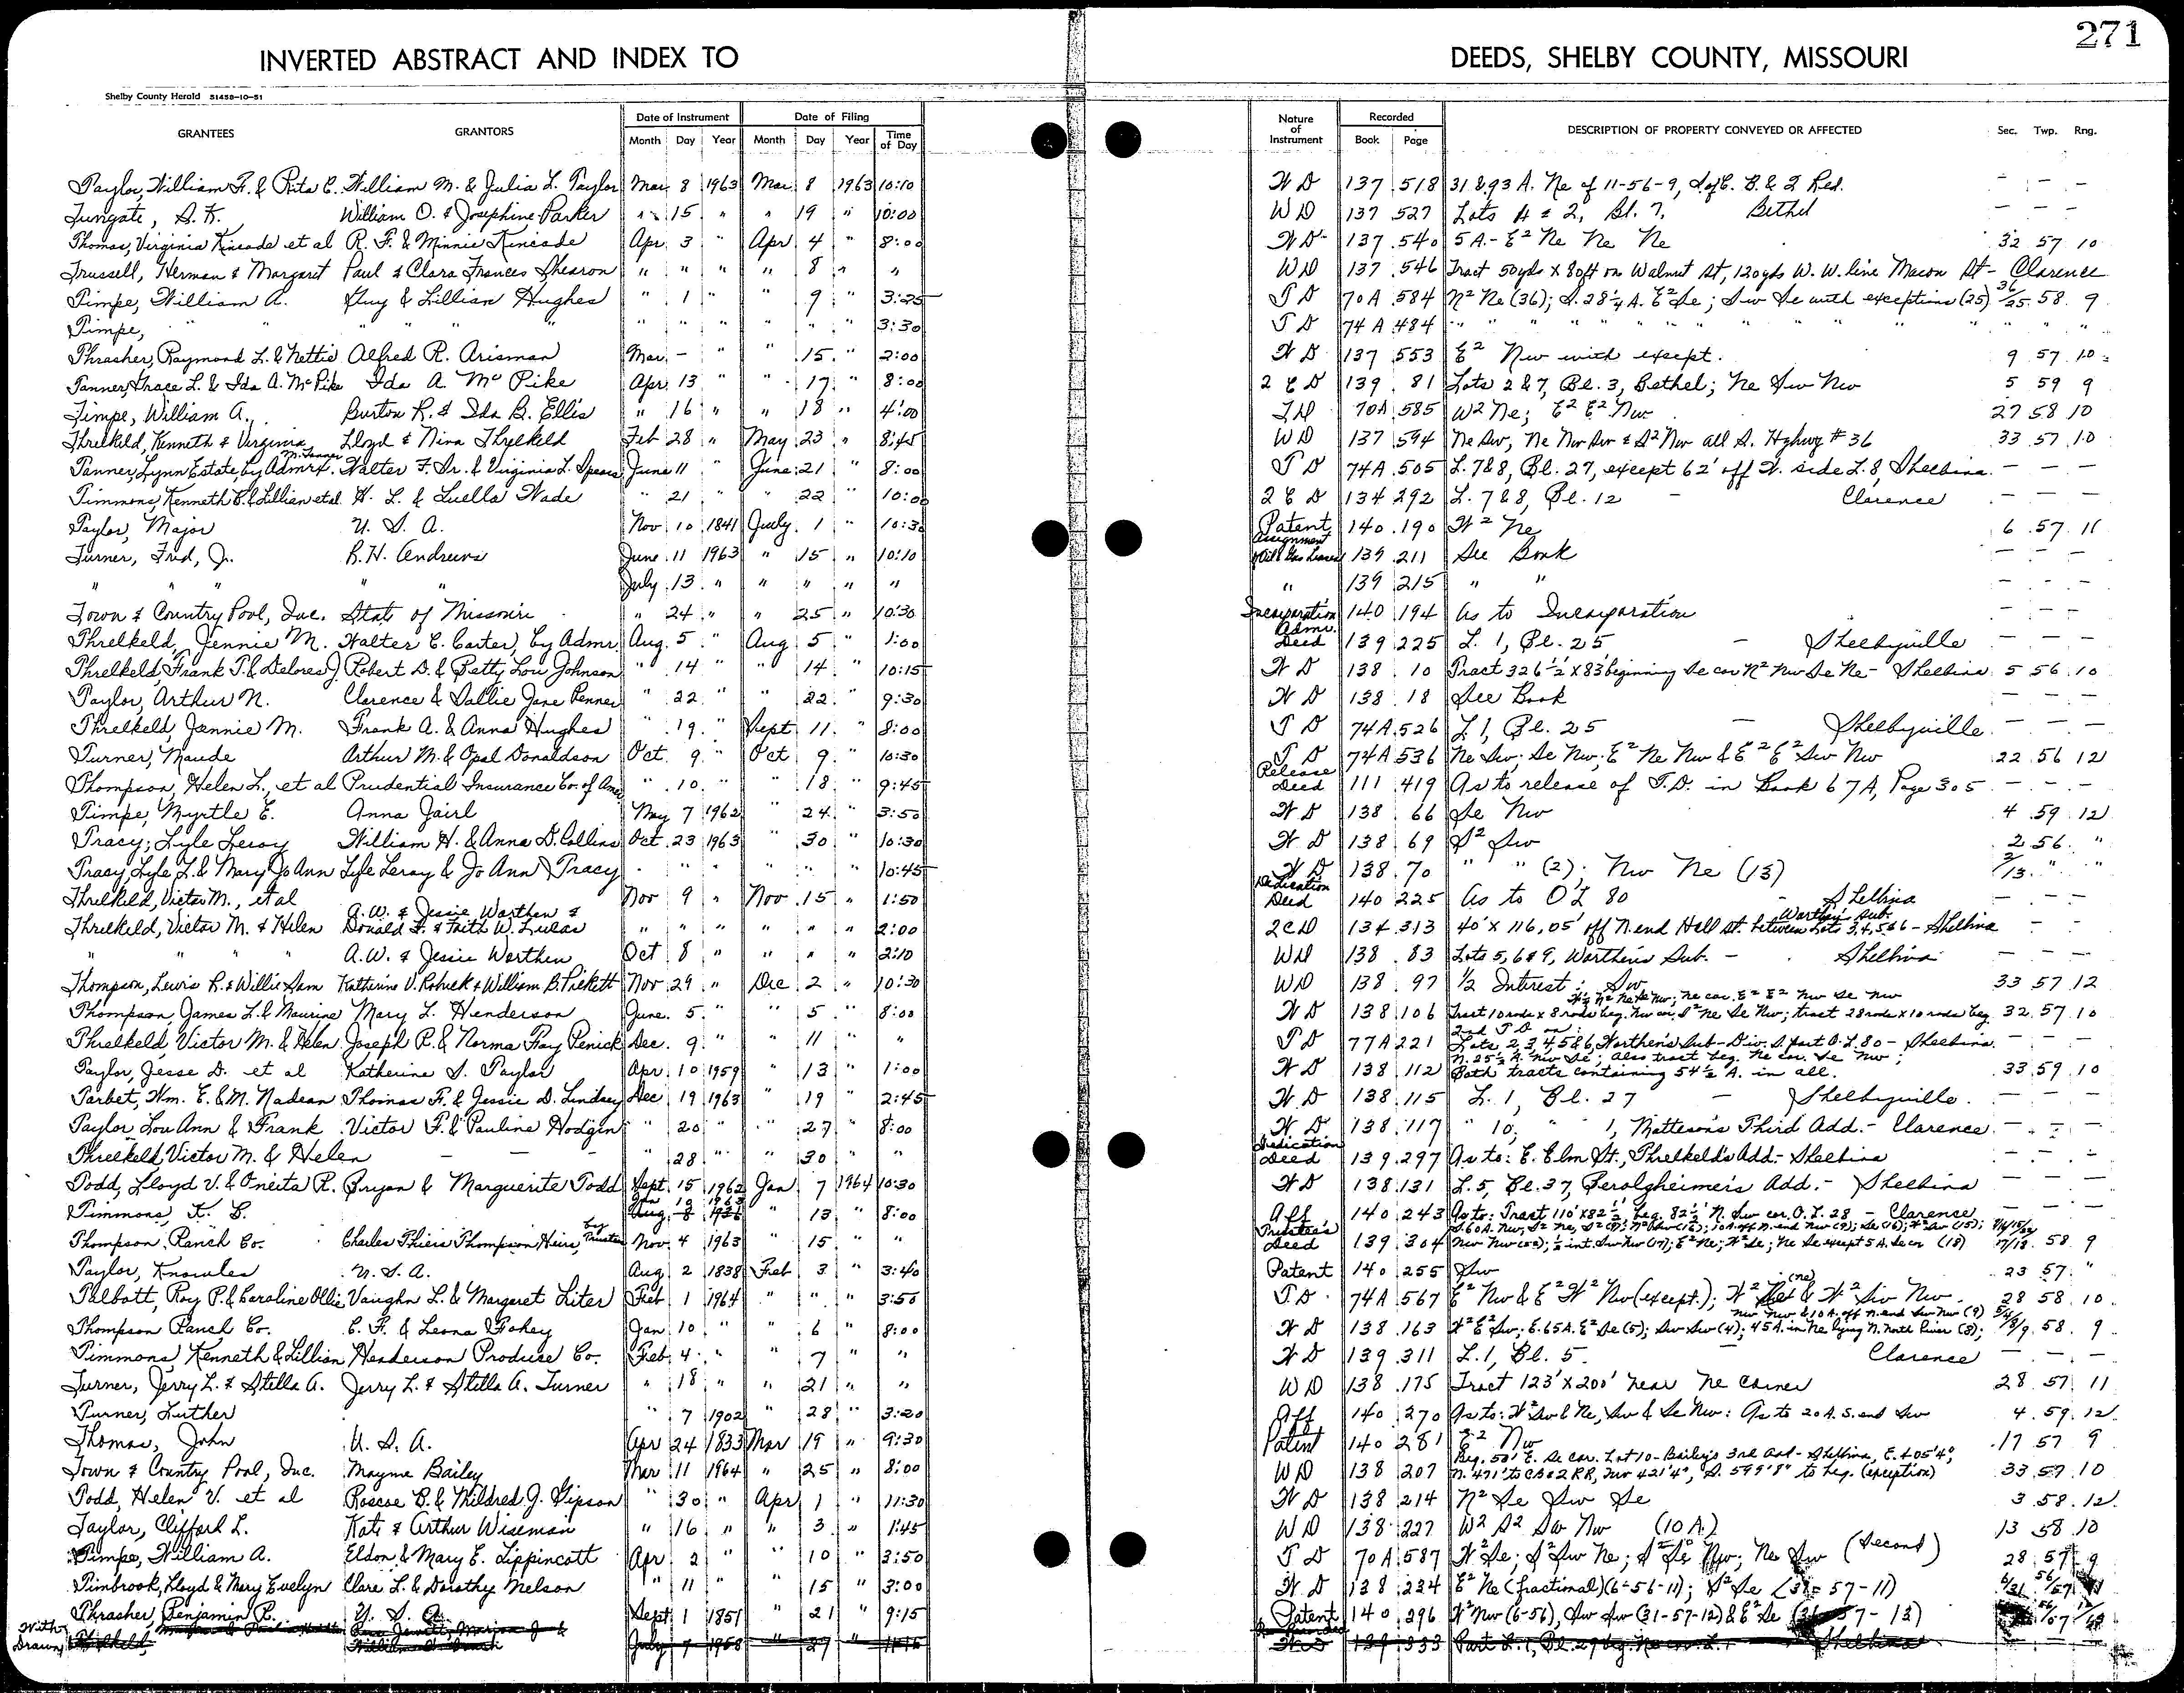 271
INVERTED ABSTRACT AND INDEX TO DEEDS, SHELBY COUNTY, MISSOURI
Shelby County Herald 51458-10-51
GRANTEES GRANTORS Date of Instrument Date of Filing Nature of Instrument Recorded DESCRIPTION OF PROPERTY CONVEYED OR AFFECTED Sec. Twp. Rng.
Month Day Year Month Day Year Time of Day Book Page
Taylor, William F. & Rita C. William M. & Julia L. Taylor Mar 8 1963 Mar 8 1963 10:10 W D 137 518 31 & 93 A. Ne of 11-56-9, S. of C. B. & Q Rd. - - -
Tungate, S. K. William O. & Josephine Parker " 15 " " 19 " 10:00 W D 137 527 Lots A & 2, Bl. 7, Bethel - - -
Thomas, Virginia Kincade et al R. F. & Minnie Kincade Apr 3 " Apr 4 " 8:00 W D 137 540 5 A. - E² Ne Ne Ne 32 57 10
Trussell, Herman & Margaret Paul & Clara Frances Shearon " " " " 8 " " W D 137 546 Tract 50yds X 80ft on Walnut St, 120yds W. W. line Macon St - Clarence
Timpe, William A. Guy & Lillian Hughes " 1 " " 9 " 3:25 T D 70A 584 N² Ne (36); S. 28¼ A. E² Se; Sw Se with exceptions (25) 36/25 58 9
Timpe, " " " " " " " " " " 3:30 T D 74A 484 " " " " " " " " " "
Thrasher, Raymond L. & Nettie Alfred R. Arisman Mar - " " 15 " 2:00 W D 137 553 E² Nw with except. 9 57 10
Tanner, Grace L. & Ida A. McPike Ida A. McPike Apr 13 " " 17 " 8:00 2 C D 139 81 Lots 2 & 7, Bl. 3, Bethel; Ne Sw Nw 5 59 9
Timpe, William A. Burton R. & Ida B. Ellis " 16 " " 18 " 4:00 T D 70A 585 W² Ne; E² E² Nw 27 58 10
Threlkeld, Kenneth & Virginia Lloyd & Nina Threlkeld Feb 28 " May 23 " 8:45 W D 137 594 Ne Sw, Ne Nw Sw & S² Nw all S. Hghwy #36 33 57 10
Tanner, Lynn Estate, by Admrx. M. Tanner Walter F. Jr. & Virginia L. Spears June 11 " June 21 " 8:00 T D 74A 505 L. 7 & 8, Bl. 27, except 62' off W. side L. 8, Shelbina - - -
Timmons, Kenneth C. & Lillian et al H. L. & Luella Wade " 21 " " 22 " 10:00 2 C D 134 292 L. 7 & 8, Bl. 12 - Clarence - - -
Taylor, Major U. S. A. Nov 10 1841 July 1 " 10:30 Patent 140 190 W² Ne 6 57 11
Turner, Fred, Jr. R. H. Andrews June 11 1963 " 15 " 10:10 Assignment Oil & Gas Leases 139 211 See Book - - -
" " " " " July 13 " " " " " " 139 215 " " - - -
Town & Country Pool, Inc. State of Missouri " 24 " " 25 " 10:30 Incorporation 140 194 As to Incorporation - - -
Threlkeld, Jennie M. Walter C. Carter, by Admr. Aug. 5 " Aug 5 " 1:00 Admr. Deed 139 225 L. 1, Bl. 25 - Shelbyville - - -
Threlkeld, Frank T. & Delores J. Robert D. & Betty Lou Johnson " 14 " " 14 " 10:15 W D 138 10 Tract 326½ X 83' beginning Se cor N² Nw Se Ne - Shelbina 5 56 10
Taylor, Arthur N. Clarence & Sallie Jane Penner " 22 " " 22 " 9:30 W D 138 18 See Book - - -
Threlkeld, Jennie M. Frank A. & Anna Hughes " 19 " Sept 11 " 8:00 T D 74A 526 L. 1, Bl. 25 - Shelbyville - - -
Turner, Maude Arthur M. & Opal Donaldson Oct 9 " Oct 9 " 10:30 T D 74A 536 Ne Sw; Se Nw; E² Ne Nw & E² E² Sw Nw 22 56 12
Thompson, Helen L., et al Prudential Insurance Co. of Amer " 10 " " 18 " 9:45 Release Deed 111 419 As to release of T.D. in Book 67A, Page 305 - - -
Timpe, Myrtle E. Anna Jairl May 7 1962 " 24 " 3:50 W D 138 66 Se Nw 4 59 12
Tracy, Lyle Leroy William H. & Anna D. Collins Oct 23 1963 " 30 " 10:30 W D 138 69 S² Sw 2 56 "
Tracy, Lyle L. & Mary Jo Ann Lyle Leroy & Jo Ann Tracy " " " " " " 10:45 W D 138 70 " " (2); Nw Ne (13) 2/13 " "
Threlkeld, Victor M., et al Nov 9 " Nov 15 " 1:50 Dedication Deed 140 225 As to O L 80 - Shelbina - - -
Threlkeld, Victor M. & Helen A. W. & Jessie Worthen & Donald F. & Faith W. Lucas " " " " " " 2:00 2 C D 134 313 40' X 116.05' off N. end Hall St. between Lots 3,4,5&6 Worthen Sub. - Shelbina - -
" " " A. W. & Jessie Worthen Oct 8 " " " " 2:10 W D 138 83 Lots 5, 6 & 9, Worthen's Sub. - Shelbina - - -
Thompson, Lewis R. & Willie Sam Katherine V. Roheck & William B. Pickett Nov 29 " Dec 2 " 10:30 W D 138 97 1/2 Interest: Sw 33 57 12
Thompson, James L. & Maurine Mary L. Henderson June 5 " " 5 " 8:00 W D 138 106 Tract 10 rods x 8 rods beg. Nw cor. S² Ne Se Nw; tract 28 rods x 10 rods beg. 32 57 10
Threlkeld, Victor M. & Helen Joseph P. & Norma Fay Penick Dec. 9 " " 11 " " T D 77A 221 2nd T D on: Lots 2,3,4,5&6, Worthen's Sub-Div. S. part O. L. 80 - Shelbina - - -
Taylor, Jesse D. et al Katherine S. Taylor Apr 10 1959 " 13 " 1:00 W D 138 112 N. 25½ A. Nw Se; also tract beg. Ne cor. Se Nw; Both tracts containing 54½ A. in all. 33 59 10
Tarbet, Wm. E. & M. Nadean Thomas F. & Jessie D. Lindsey Dec 19 1963 " 19 " 2:45 W D 138 115 L. 1, Bl. 27 - Shelbyville - - -
Taylor, Lou Ann & Frank Victor F. & Pauline Hodgin " 20 " " 27 " 8:00 W D 138 117 " 10, " 1, Matteson's Third Add. - Clarence - - -
Threlkeld, Victor M. & Helen - - - " 28 " " 30 " " Dedication Deed 139 297 As to: E. Elm St., Threlkeld's Add. - Shelbina - - -
Todd, Lloyd V. & Oneita R. Bryan & Marguerite Todd Sept. 15 1962 Jan 7 1964 10:30 W D 138 131 L. 5, Bl. 37, Gerolgheimer's Add. - Shelbina - - -
Timmons, K. C. " 13 " 8:00 Aff 140 243 As to: Tract 110' X 82½', beg. 82½' N. Sw cor. O. L. 28 - Clarence - - -
Thompson Ranch Co. Charles Thiers Thompson Heirs, by Trustee Nov. 4 1963 " 15 " " Trustee's Deed 139 304 58 9
Taylor, Knowles U. S. A. Aug 2 1838 Feb 3 " 3:40 Patent 140 255 Sw 23 57 "
Talbott, Roy P. & Caroline Ollie Vaughn L. & Margaret Liter Feb 1 1964 " " " 3:50 T D 74A 567 E² Nw & E² W² Nw (except.); W² (ne) & W² Sw Nw 28 58 10
Thompson Ranch Co. C. F. & Leona Fohey Jan 10 " " 6 " 8:00 W D 138 163 W² E² Sw; E. 65 A. E² Se (5); Sw Sw (4); 45 A. in Ne lying N. North River (8); Nw Nw & 10 A. off N. end Sw Nw (9) 58 9
Timmons, Kenneth & Lillian Henderson Produce Co. Feb 4 " " 7 " " W D 139 311 L. 1, Bl. 5 - Clarence - - -
Turner, Jerry L. & Stella A. Jerry L. & Stella A. Turner " 18 " " 21 " " W D 138 175 Tract 123' X 200' near Ne corner 28 57 11
Turner, Luther " 7 1902 " 28 " 3:20 Aff 140 270 As to: W² Sw & Ne, Sw & Se Nw: As to 20 A. S. end Sw 4 59 12
Thomas, John U. S. A. Apr 24 1833 Mar 19 " 9:30 Patent 140 281 E² Nw 17 57 9
Town & Country Pool, Inc. Mayme Bailey Mar 11 1964 " 25 " 8:00 W D 138 207 Beg. 50' E. Se cor. Lot 10 - Bailey's 3rd Add - Shelbina, E. 405'4", N. 471' to CB & Q RR, Nw 421'4", S. 599'8" to beg. (exception) 33 57 10
Todd, Helen V. et al Roscoe B. & Mildred J. Gipson " 30 " Apr 1 " 11:30 W D 138 214 N² Se Sw Se 3 58 12
Taylor, Clifford L. Kate & Arthur Wiseman " 16 " " 3 " 1:45 W D 138 227 W² S² Sw Nw (10 A.) 13 58 10
Timpe, William A. Eldon & Mary E. Lippincott Apr 2 " " 10 " 3:50 T D 70A 587 W² Se; S² Sw Ne; S² Se Nw; Ne Sw (Second) 28 57 9
Timbrook, Lloyd & Mary Evelyn Clare L. & Dorothy Nelson " 11 " " 15 " 3:00 W D 138 234 E² Ne (fractional) (6-56-11); S² Se (31-57-11)
Thrasher, Benjamin R. U. S. A. Sept 1 1851 " 21 " 9:15 Patent 140 296 W² Nw (6-56), Sw Sw (31-57-12) & E² Se
With Drawn Threlkeld, July 7 1958 " 27 W D 139 333 Part L. 1, Bl. 29 beg. Ne cor L. 1 Shelbina